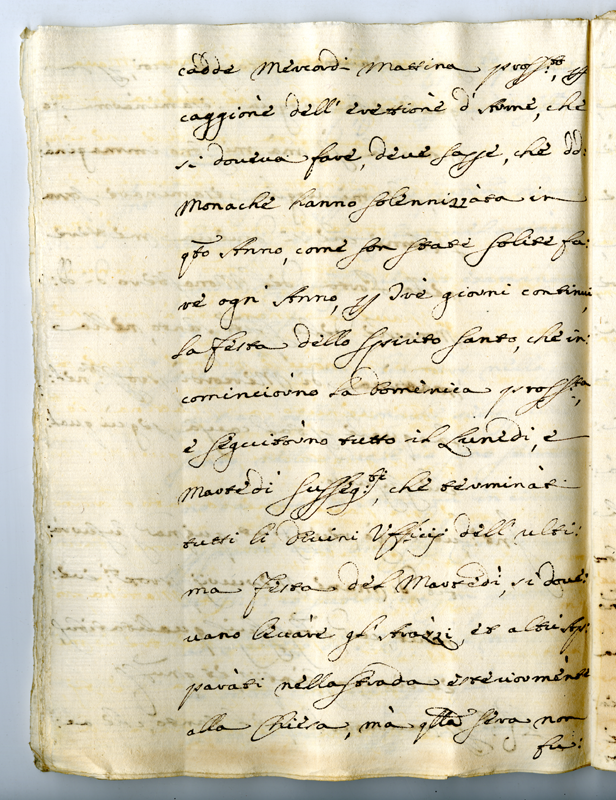 cadde Mercordi Mattina pross:to, p
caggione dell' erettione d'Arme, che
si doveva fare, deve sapse, che dd:
Monache hanno solennizzata in
q̃to Anno, come son state solite fa:
re ogn' Anno, p tre giorni continui,
la festa dello Spirito Santo, che in:
cominciorno la Domenica pross:ta,
e seguitorno tutto il Lunedi, e
Martedi susseg:ti, che terminàti
tutti li Divini Ufficij dell' ulti:
ma festa del Martedi, si dove:
vano levare gl' strazzi, et altri Ap:
paràti nella strada esteriormènte
alla Chiesa, mà q̃lla sera non
fu: